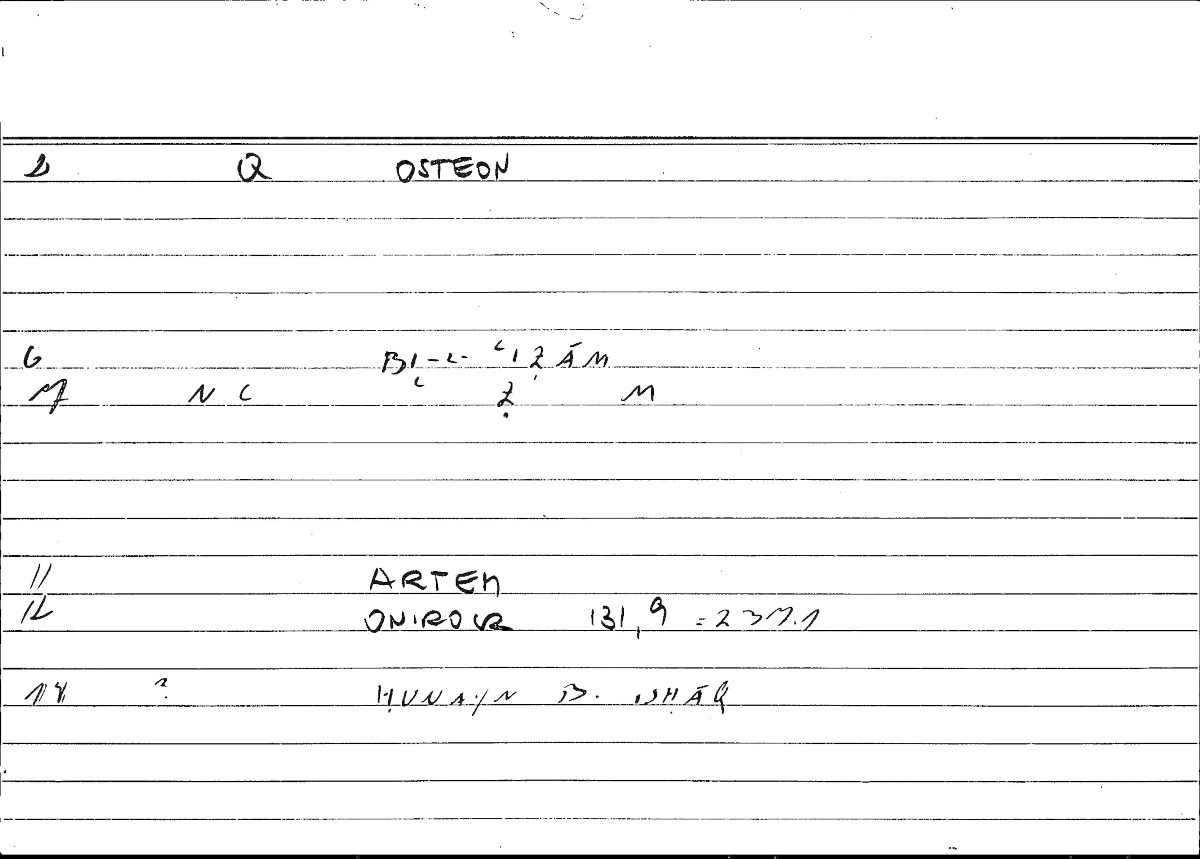 1 Q OSTEON
6 BI-L- ʿIẒĀM
7 N C ʿ Ẓ M
11 ARTEM
12 ONIROCR 131,9 = 237.1
14 ? ḤUNAYN B. ISḤĀQ